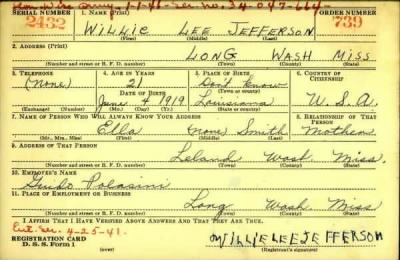 1-1-46 Ser. no. 34-047-664
SERIAL NUMBER 1. NAME (Print) ORDER NUMBER
2432 WILLIE LEE JEFFERSON 739
(First) (Middle) (Last)
2. ADDRESS (Print)
LONG WASH MISS
(Number and street or R. F. D. number) (Town) (County) (State)
3. TELEPHONE 4. AGE IN YEARS 5. PLACE OF BIRTH 6. COUNTRY OF CITIZENSHIP
(None) 21 Don't know
DATE OF BIRTH (Town or county)
June 4 1919 Louisiana U.S.A.
(Exchange) (Number) (Mo.) (Day) (Yr.) (State or country)
7. NAME OF PERSON WHO WILL ALWAYS KNOW YOUR ADDRESS 8. RELATIONSHIP OF THAT PERSON
Ella (none) Smith Mother
(Mr., Mrs., Miss) (First) (Middle) (Last)
9. ADDRESS OF THAT PERSON
Leland Wash. Miss.
(Number and street or R. F. D. number) (Town) (County) (State)
10. EMPLOYER'S NAME
Guido Polasini
11. PLACE OF EMPLOYMENT OR BUSINESS
Long Wash. Miss.
(Number and street or R. F. D. number) (Town) (County) (State)
I AFFIRM THAT I HAVE VERIFIED ABOVE ANSWERS AND THAT THEY ARE TRUE.
Ent. Ser. 4-25-41.
REGISTRATION CARD WILLIE LEE JEFFERSON
D. S. S. Form 1 (over) (Registrant's signature)